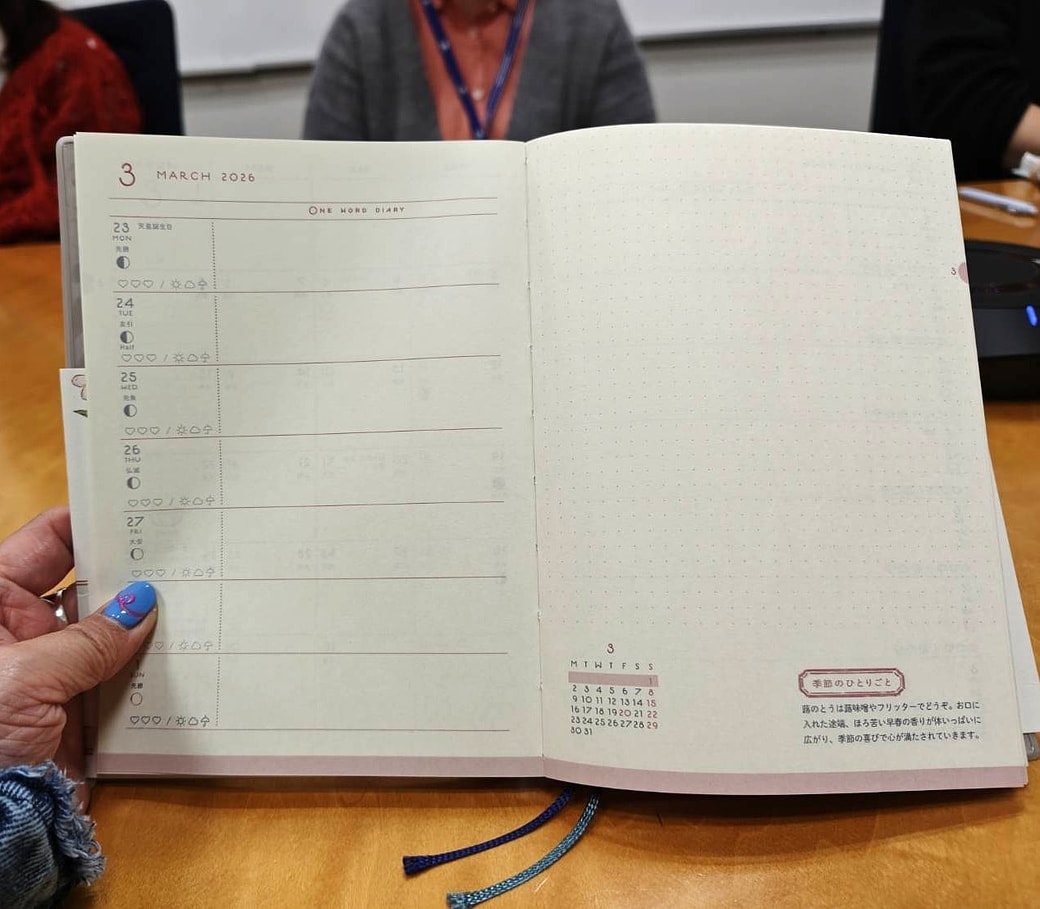 3 MARCH 2026
ONE WORD DIARY
23 天皇誕生日
MON
先勝
24
TUE
友引
Half
25
WED
先負
26
THU
仏滅
27
FRI
大安
1
SUN
先勝
3
3
M T W T F S S
1
2 3 4 5 6 7 8
9 10 11 12 13 14 15
16 17 18 19 20 21 22
23 24 25 26 27 28 29
30 31
季節のひとりごと
蕗のとうは蕗味噌やフリッターでどうぞ。お口に
入れた途端、ほろ苦い早春の香りが体いっぱいに
広がり、季節の喜びで心が満たされていきます。